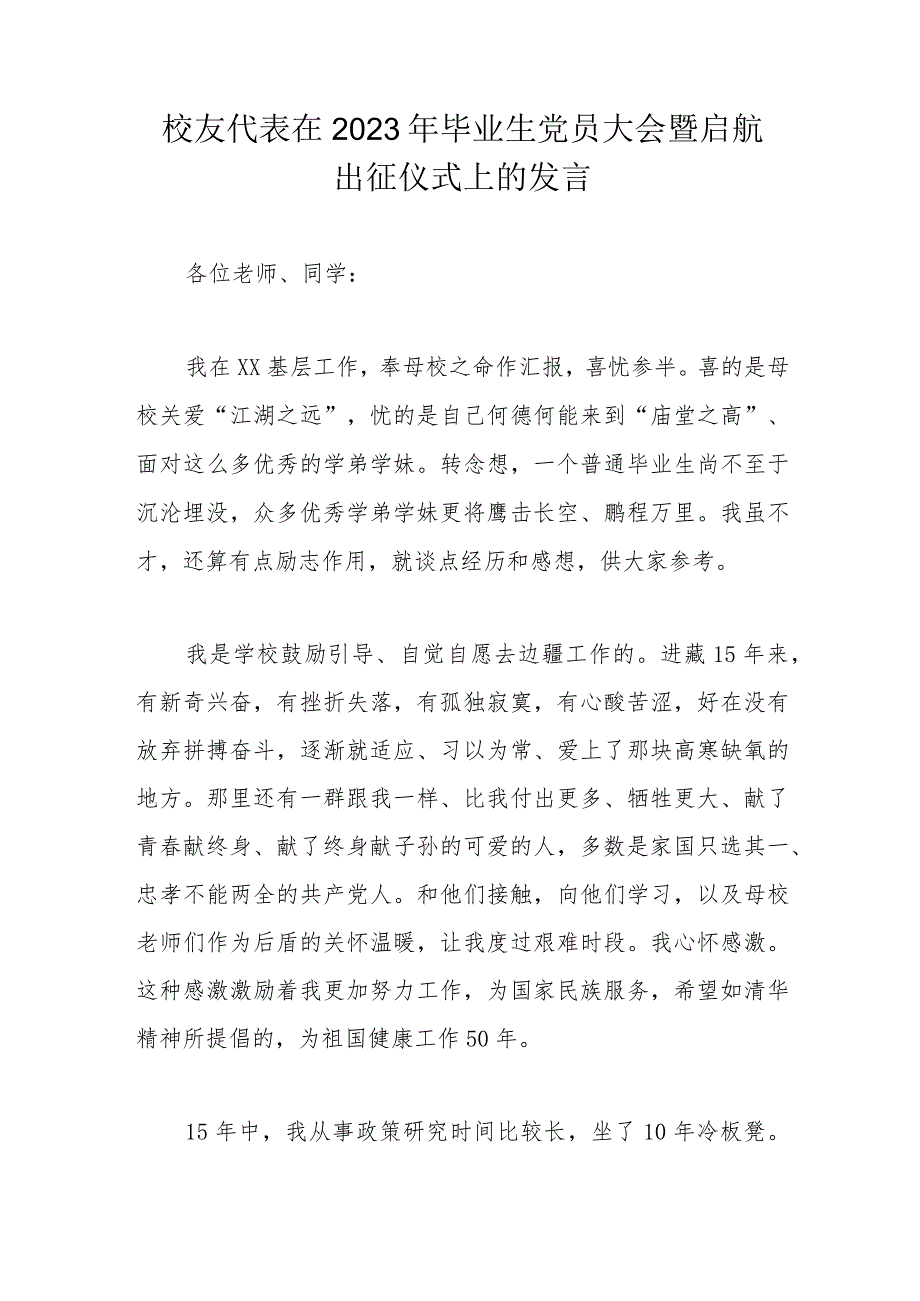 校友代表在 2023 年毕业生党员大会暨启航
出征仪式上的发言
各位老师、同学：
我在 XX 基层工作，奉母校之命作汇报，喜忧参半。喜的是母
校关爱“江湖之远”，忧的是自己何德何能来到“庙堂之高”、
面对这么多优秀的学弟学妹。转念想，一个普通毕业生尚不至于
沉沦埋没，众多优秀学弟学妹更将鹰击长空、鹏程万里。我虽不
才，还算有点励志作用，就谈点经历和感想，供大家参考。
我是学校鼓励引导、自觉自愿去边疆工作的。进藏 15 年来，
有新奇兴奋，有挫折失落，有孤独寂寞，有心酸苦涩，好在没有
放弃拼搏奋斗，逐渐就适应、习以为常、爱上了那块高寒缺氧的
地方。那里还有一群跟我一样、比我付出更多、牺牲更大、献了
青春献终身、献了终身献子孙的可爱的人，多数是家国只选其一、
忠孝不能两全的共产党人。和他们接触，向他们学习，以及母校
老师们作为后盾的关怀温暖，让我度过艰难时段。我心怀感激。
这种感激激励着我更加努力工作，为国家民族服务，希望如清华
精神所提倡的，为祖国健康工作 50 年。
15 年中，我从事政策研究时间比较长，坐了 10 年冷板凳。